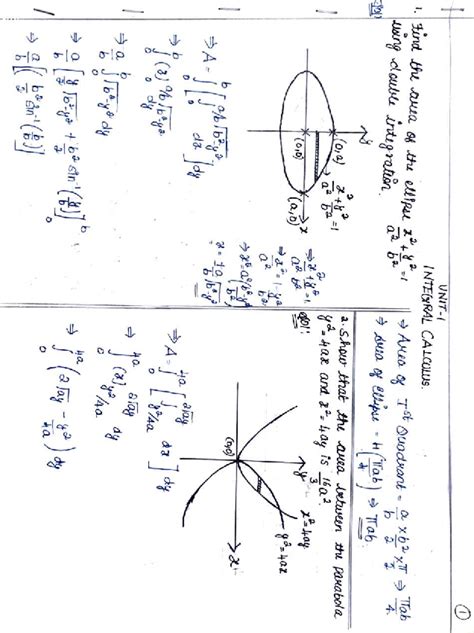 ①
UNIT-1
INTEGRAL CALCULUS.
1. Find the area of the ellipse x²/a² + y²/b² = 1
using double integration.
Sol:
y
(0,b)
x²/a² + y²/b² = 1
(0,0)
(a,0)
x
⇒ x²/a² + y²/b² = 1
⇒ x²/a² = 1 - y²/b²
x = ± a/b √b²-y²
⇒ A = ∫₀ᵇ [ ∫₀^(a/b √b²-y²) dx ] dy
⇒ ∫₀ᵇ (x)₀^(a/b √b²-y²) dy
⇒ a/b ∫₀ᵇ √b²-y² dy
⇒ a/b [ y/2 √b²-y² + b²/2 sin⁻¹(y/b) ]₀ᵇ
⇒ a/b [ b²/2 sin⁻¹(b/b) ]
⇒ Area of Iˢᵗ Quadrant = a/b × b²/2 × π/2 ⇒ πab/4
⇒ Area of Ellipse = 4(πab/4) ⇒ πab.
2. Show that the area between the parabola
y² = 4ax and x² = 4ay is 16/3 a².
Sol:
y
x² = 4ay
y² = 4ax
(0,0)
x
⇒ A = ∫₀^4a [ ∫_(y²/4a)^(2√ay) dx ] dy
⇒ ∫₀^4a (x)_(y²/4a)^(2√ay) dy
⇒ ∫₀^4a ( 2√ay - y²/4a ) dy